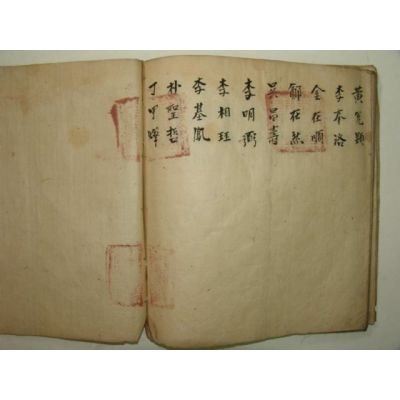 黃冕顯
李本洛
金在順
鄭在然
吳昌壽
李明衡
李相珏
李基鳳
朴聖哲
丁甲燁